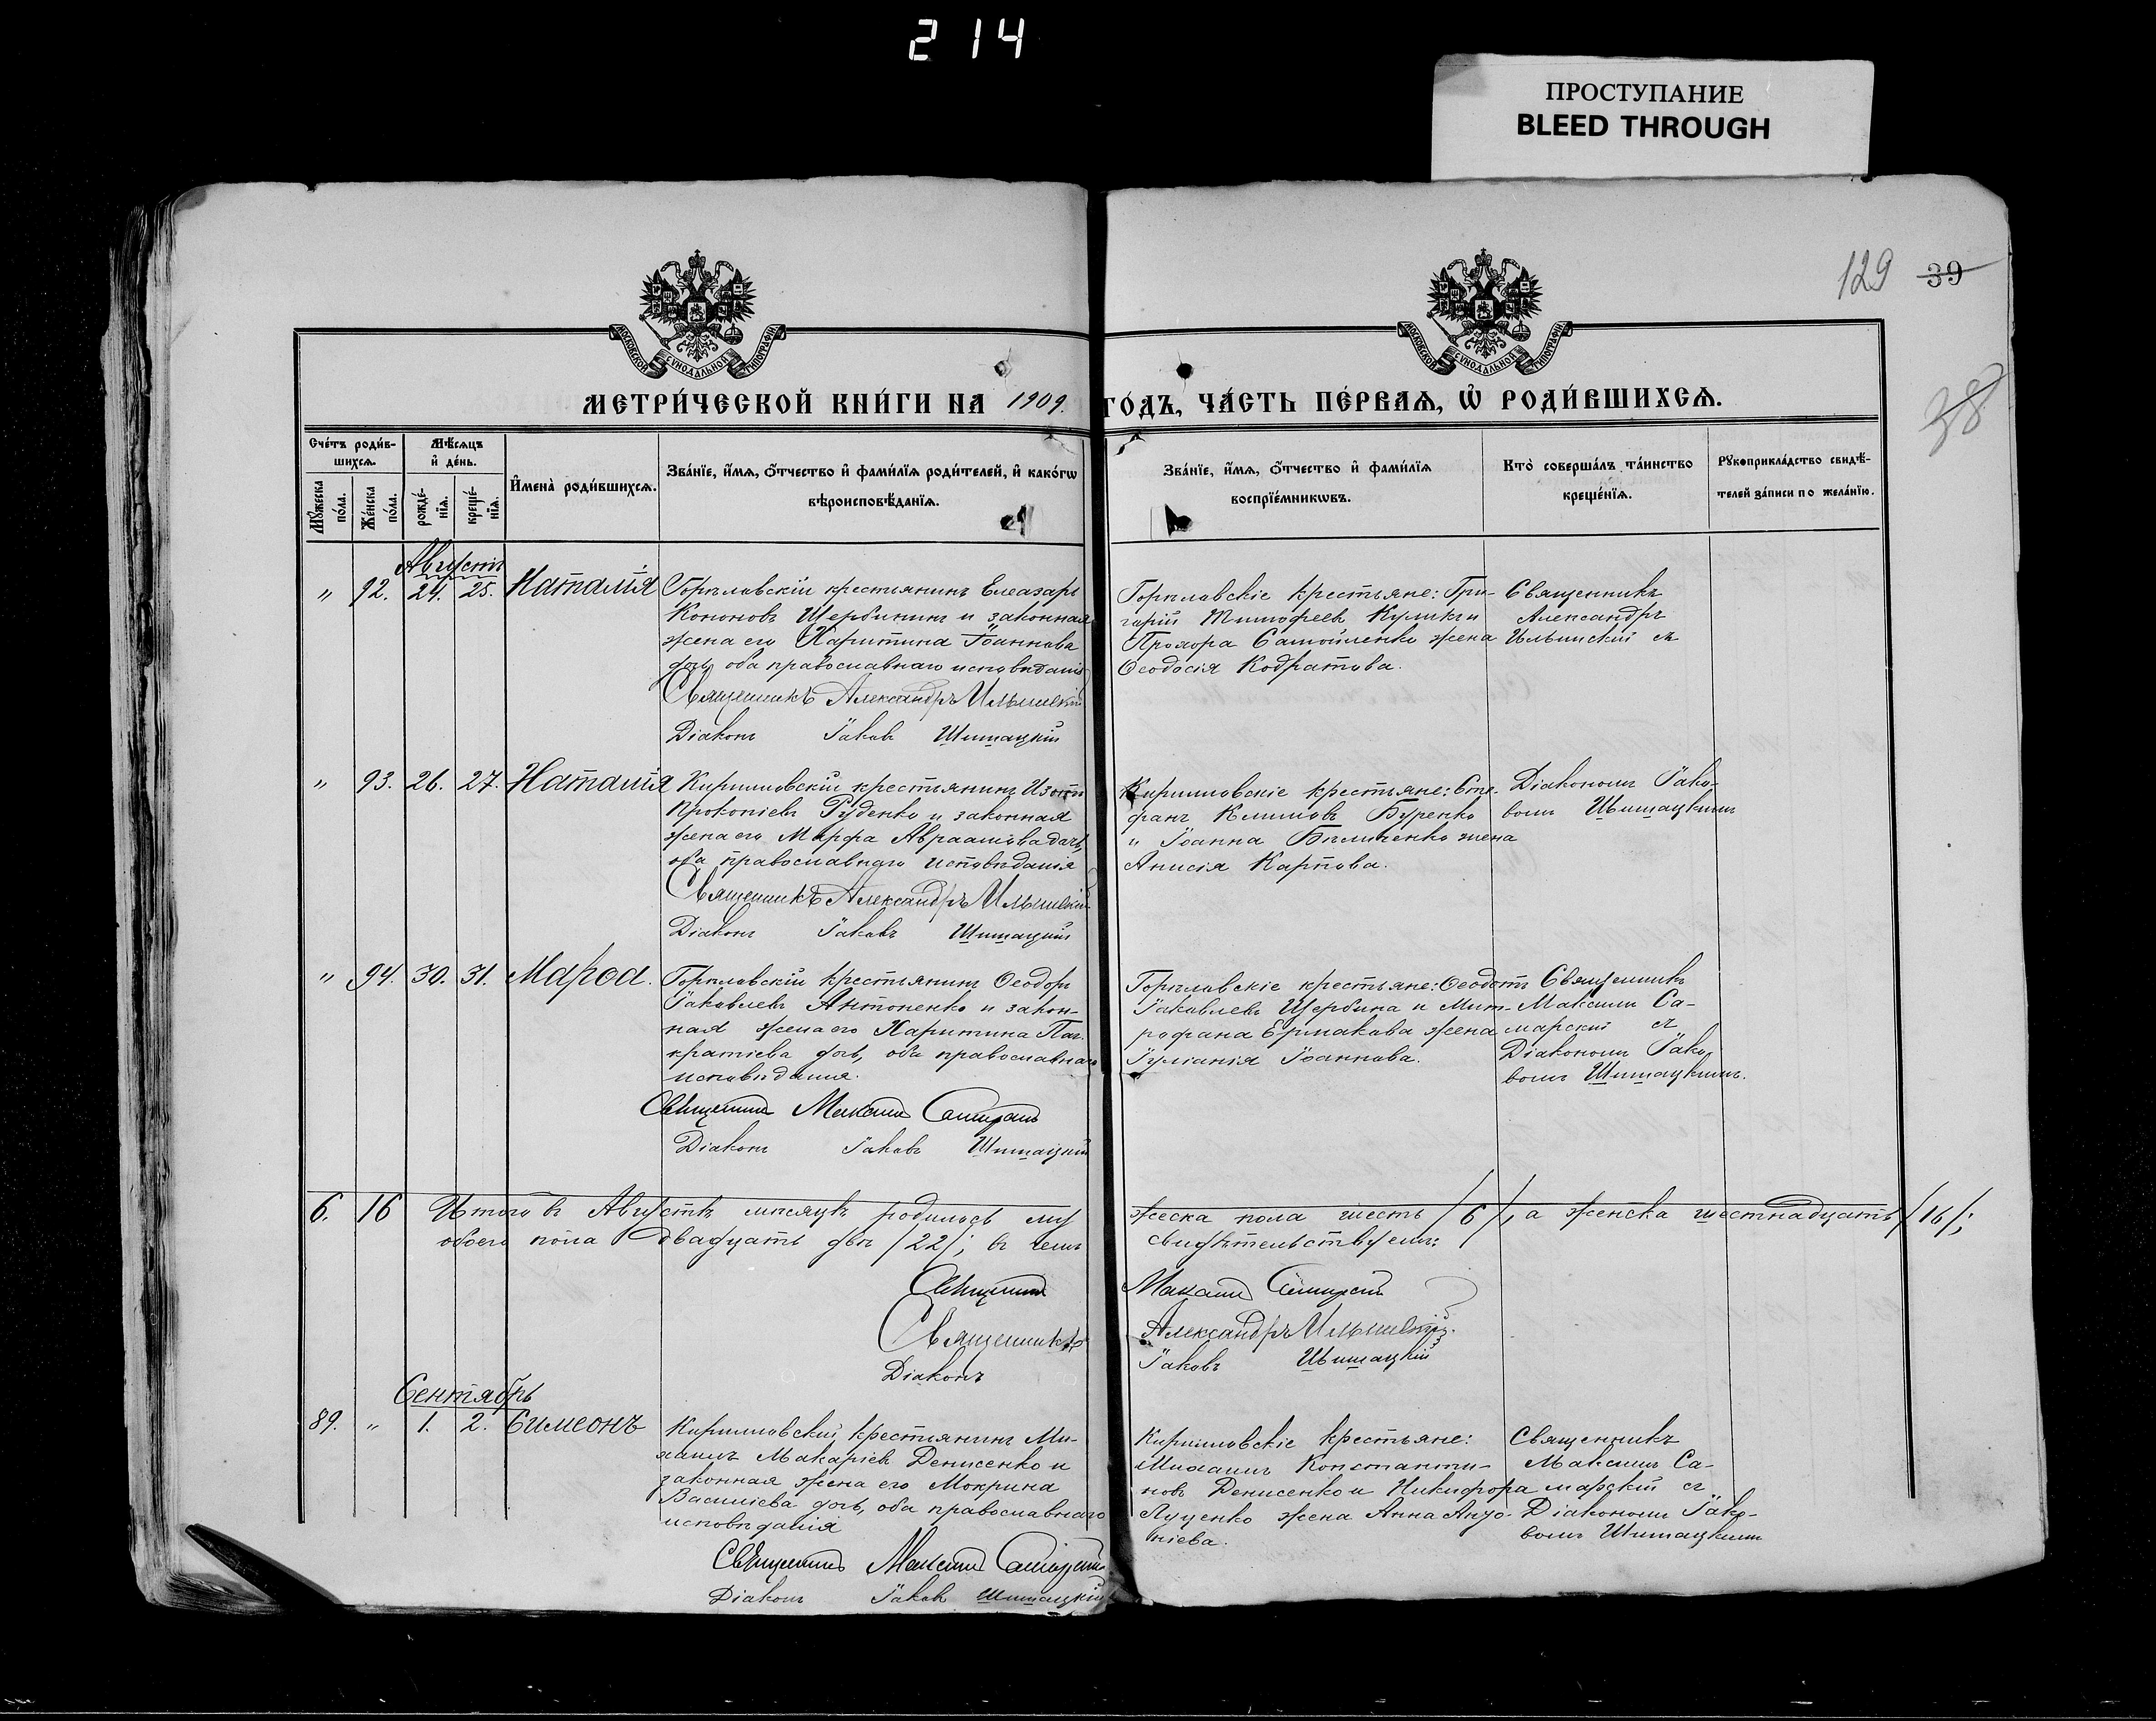 214
ПРОСТУПАНИЕ
BLEED THROUGH
129 39
38
МОСКОВСКОЙ СѴНОДАЛЬНОЙ ТИПОГРАФІИ
МОСКОВСКОЙ СѴНОДАЛЬНОЙ ТИПОГРАФІИ
МЕТРИ́ЧЕСКОЙ КНИ́ГИ НА 1909. ГО́ДЪ, ЧА́СТЬ ПЕ́РВАѦ, Ѡ҆ РОДИ́ВШИХСѦ.
Сче́тъ роди́в-
шихсѧ.
Мѣ́сѧцъ
и҆ де́нь.
Мꙋ́жеска
по́ла.
Же́нска
по́ла.
рожде́-
нїѧ.
креще́-
нїѧ.
И҆мена̀ роди́вшихсѧ.
Зва́нїе, и҆́мѧ, ѻ҆́тчество и҆ фами́лїѧ роди́телей, и҆ како́гѡ
вѣроисповѣ́данїѧ.
Зва́нїе, и҆́мѧ, ѻ҆́тчество и҆ фами́лїѧ
воспрїе́мникѡвъ.
Кто̀ соверша́лъ та́инство
креще́нїѧ.
Рꙋкоприкла́дство свидѣ́-
телей за́писи по жела́нїю.
Августъ
" 92. 24. 25. Наталія
Горѣловскій крестьянинъ Елеазаръ
Кононовъ Щербининъ и законная
жена его Харитина Іоаннова
дочь, оба православнаго исповѣданія
Священникъ Александръ Ильинскій
Діаконъ Іаковъ Шишацкій
Горѣловскіе крестьяне: Гри-
горій Тимофеевъ Куликъ и
Прохора Самойленко жена
Ѳеодосія Кодратова.
Священникъ
Александръ
Ильинскій съ
" 93. 26. 27. Наталія
Кирилловскій крестьянинъ Изотъ
Прокопіевъ Руденко и законная
жена его Марфа Авраамова дочь,
оба православнаго исповѣданія
Священникъ Александръ Ильинскій
Діаконъ Іаковъ Шишацкій
Кирилловскіе крестьяне: Сте-
фанъ Климовъ Буренко
и Іоанна Биличенко жена
Анисія Карпова.
Діакономъ Іако-
вомъ Шишацкимъ
" 94. 30. 31. Марѳа.
Горѣловскій крестьянинъ Ѳеодоръ
Іаковлевъ Антоненко и закон-
ная жена его Харитина Пан-
кратіева дочь, оба православнаго
исповѣданія.
Священникъ Максимъ Самарскій
Діаконъ Іаковъ Шишацкій
Горѣловскіе крестьяне: Ѳеодотъ
Іаковлевъ Щербина и Мит-
рофана Ермакова жена
Іуліанія Іоаннова.
Священникъ
Максимъ Са-
марскій съ
Діакономъ Іако-
вомъ Шишацкимъ.
6. 16 Итого въ Августѣ мѣсяцѣ родилось му жеска пола шесть /6/, а женска шестнадцать /16/;
обоего пола двадцать два /22/; въ чемъ свидѣтельствуемъ:
Священникъ Максимъ Самарскій
Священникъ Александръ Ильинскій.
Діаконъ Іаковъ Шишацкій
Сентябрь
89. " 1. 2. Симеонъ
Кирилловскій крестьянинъ Ми-
хаилъ Макаріевъ Денисенко и
законная жена его Мокрина
Василіева дочь, оба православнаго
исповѣданія
Священникъ Максимъ Самарскій
Діаконъ Іаковъ Шишацкій
Кирилловскіе крестьяне:
Михаилъ Константи-
новъ Денисенко и Никифора
Луценко жена Анна Анто-
ніева.
Священникъ
Максимъ Са-
марскій съ
Діакономъ Іако-
вомъ Шишацкимъ